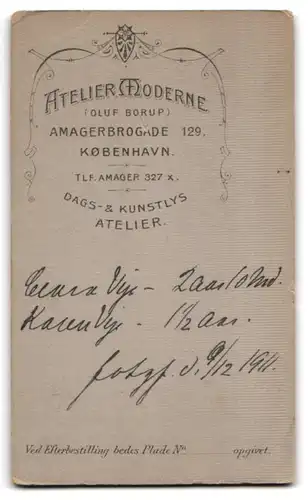 ATELIER MODERNE.
(OLUF BORUP)
AMAGERBROGADE 129.
KØBENHAVN.
TLF. AMAGER 327 x.
DAGS- & KUNSTLYS
ATELIER.
Clara Vije - 2 Aar 10 Md.
Karen Vije - 1½ Aar.
fotogf. d. 9/12 1911.
Ved Efterbestilling bedes Plade No. opgivet.